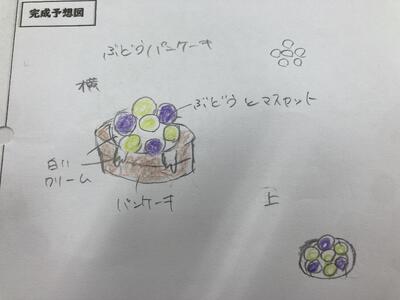 完成予想図
ぶどうパンケーキ
横
ぶどうとマスカット
白い
クリーム
パンケーキ
上